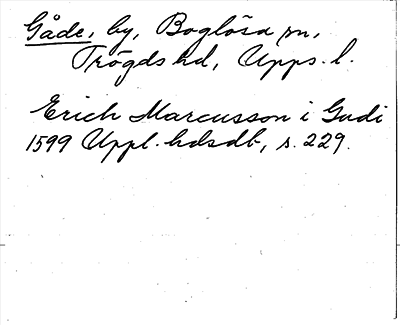 Gåde, by, Boglösa sn,
Trögds hd, Upps. l.
Erich Marcusson i Gudi
1599 Uppl. hdsdb, s. 229.